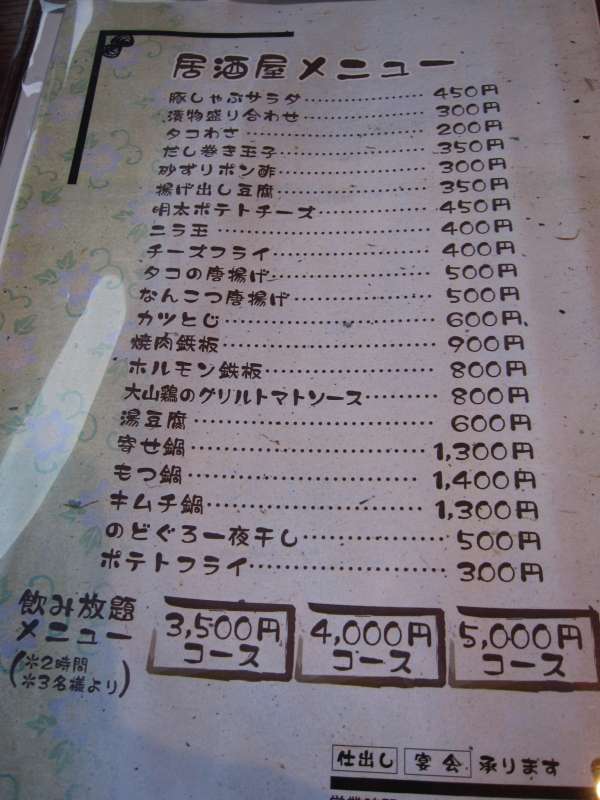 居酒屋メニュー
豚しゃぶサラダ 450円
漬物盛り合わせ 300円
タコわさ 200円
だし巻き玉子 350円
砂ずりポン酢 300円
揚げ出し豆腐 350円
明太ポテトチーズ 450円
ニラ玉 400円
チーズフライ 400円
タコの唐揚げ 500円
なんこつ唐揚げ 500円
カツとじ 600円
焼肉鉄板 900円
ホルモン鉄板 800円
大山鶏のグリルトマトソース 800円
湯豆腐 600円
寄せ鍋 1,300円
もつ鍋 1,400円
キムチ鍋 1,300円
のどぐろ一夜干し 500円
ポテトフライ 300円
飲み放題
メニュー
(※2時間
※3名様より)
3,500円
コース
4,000円
コース
5,000円
コース
仕出し 宴会 承ります